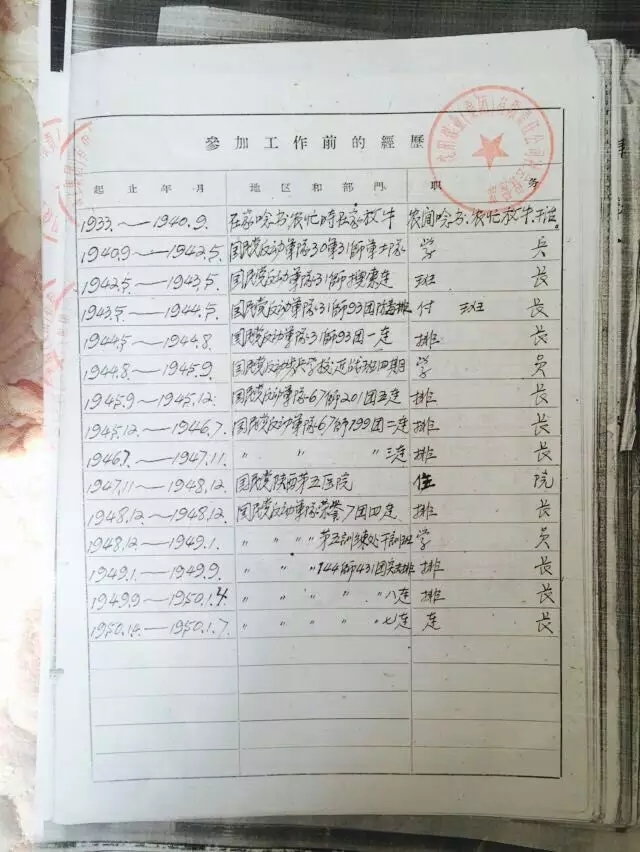 參加工作前的經歷
起止年月 地区和部門 职务
1933.—1940.9. 在家唸书农忙時在家放牛 农闲唸书.农忙放牛干活.
1940.9—1942.5. 国民党反动軍隊30軍31師軍士隊 学兵
1942.5—1943.5 国民党反动軍隊31師搜索連 班长
1943.5—1944.5 国民党反动軍隊31師93团排 付班长
1944.5—1944.8. 国民党反动軍隊31師93团一連 排长
1944.8—1945.9. 国民党反动步兵学校近战班四期 学员
1945.9—1945.12. 国民党反动軍隊67師201团五連 排长
1945.12.—1946.7. 国民党反动軍隊67師199团二連 排长
1946.7.—1947.11. 〃 〃 〃三連 排长
1947.11—1948.12. 国民党陕西第五医院 住院
1948.12.—1948.12. 国民党反动軍隊荣誉7团四連 排长
1948.12—1949.1. 〃 〃 〃 〃第五訓練处干訓班 学员
1949.1—1949.9. 〃 〃 〃144師431团排 排长
1949.9—1950.1.4. 〃 〃 〃 〃 〃八連 排长
1950.1.4.—1950.1.7. 〃 〃 〃 〃 〃七連 連长